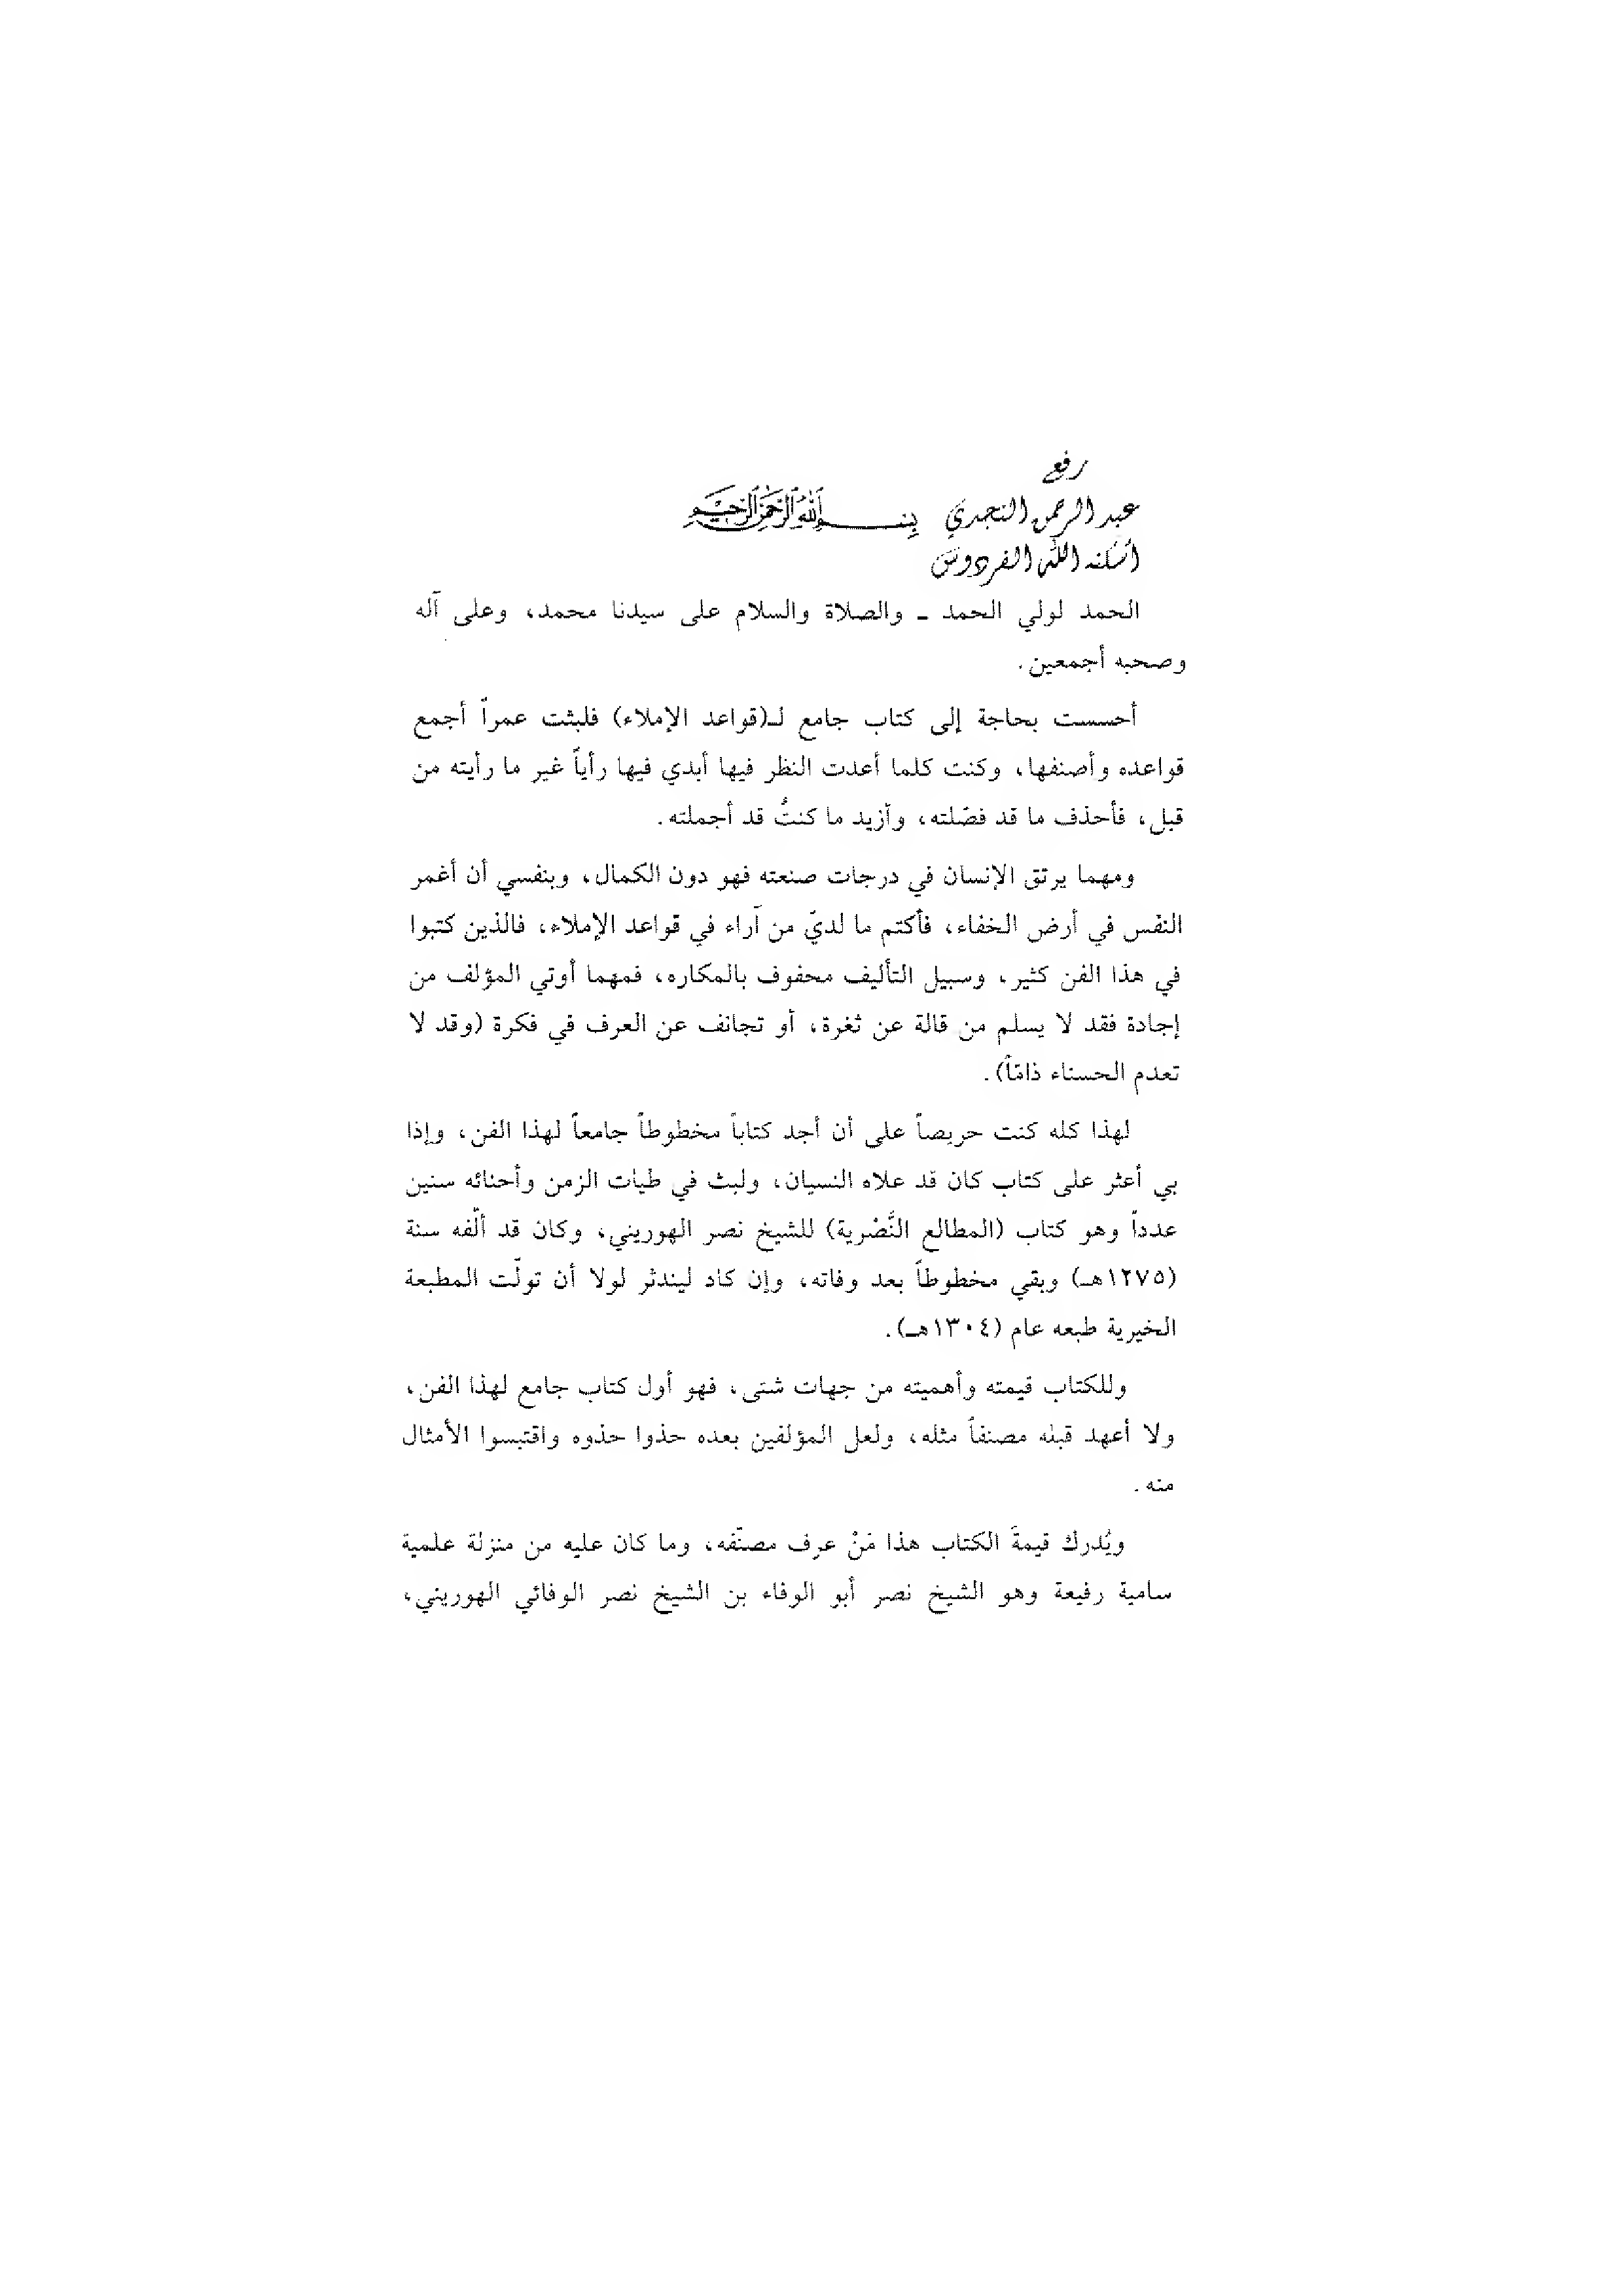 رفع
عبد الرحمن النجدي
بسم الله الرحمن الرحيم
أسكنه الله الفردوس
الحمد لولي الحمد ـ والصلاة والسلام على سيدنا محمد، وعلى آله
وصحبه أجمعين.
أحسست بحاجة إلى كتاب جامع لـ(قواعد الإملاء) فلبثت عمراً أجمع
قواعده وأصنفها، وكنت كلما أعدت النظر فيها أبدي فيها رأياً غير ما رأيته من
قبل، فأحذف ما قد فصّلته، وأزيد ما كنتُ قد أجملته.
ومهما يرتق الإنسان في درجات صنعته فهو دون الكمال، وبنفسي أن أغمر
النفس في أرض الخفاء، فأكتم ما لديّ من آراء في قواعد الإملاء، فالذين كتبوا
في هذا الفن كثير، وسبيل التأليف محفوف بالمكاره، فمهما أوتي المؤلف من
إجادة فقد لا يسلم من قالة عن ثغرة، أو تجانف عن العرف في فكرة (وقد لا
تعدم الحسناء ذامّاً).
لهذا كله كنت حريصاً على أن أجد كتاباً مخطوطاً جامعاً لهذا الفن، وإذا
بي أعثر على كتاب كان قد علاه النسيان، ولبث في طيات الزمن وأحنائه سنين
عدداً وهو كتاب (المطالع النَّصْرية) للشيخ نصر الهوريني، وكان قد ألّفه سنة
(١٢٧٥هـ) وبقي مخطوطاً بعد وفاته، وإن كاد ليندثر لولا أن تولّت المطبعة
الخيرية طبعه عام (١٣٠٤هـ).
وللكتاب قيمته وأهميته من جهات شتى، فهو أول كتاب جامع لهذا الفن،
ولا أعهد قبله مصنفاً مثله، ولعل المؤلفين بعده حذوا حذوه واقتبسوا الأمثال
منه.
ويُدرك قيمةَ الكتاب هذا مَنْ عرف مصنّفه، وما كان عليه من منزلة علمية
سامية رفيعة وهو الشيخ نصر أبو الوفاء بن الشيخ نصر الوفائي الهوريني،